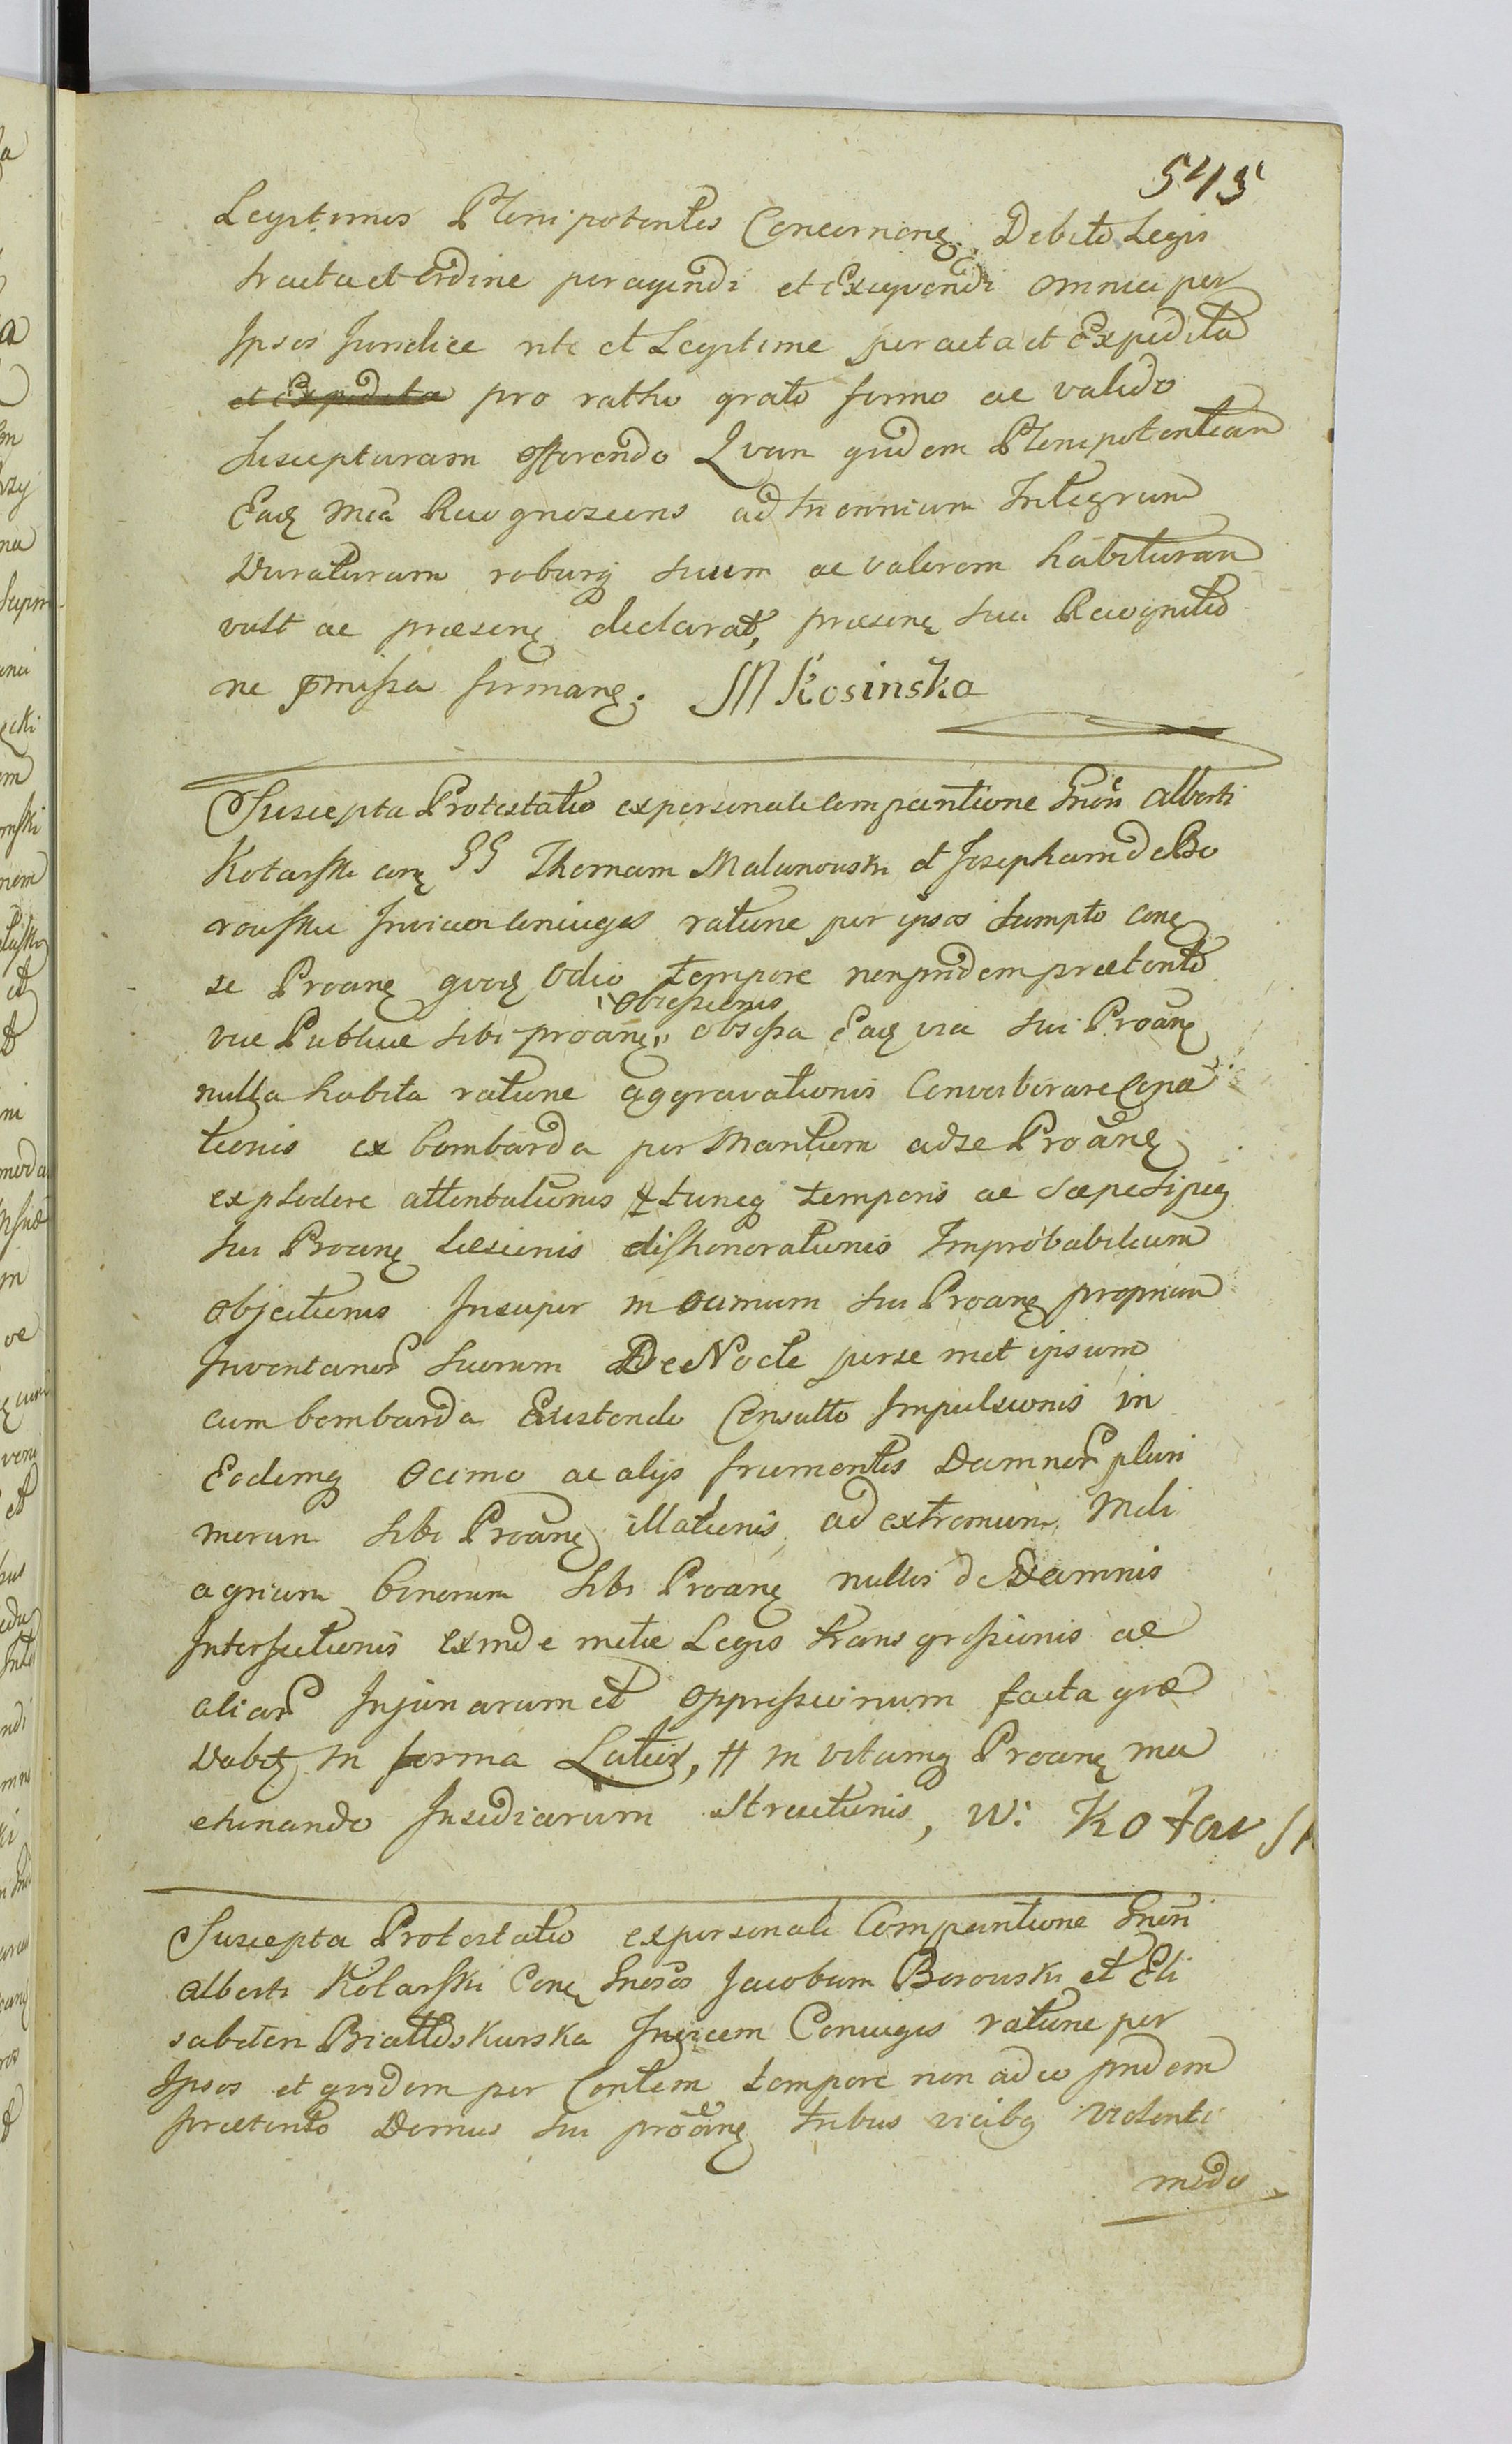 545
Legitimos Plenipotentes Concernen. Debito Legis
tractu et ordine peragendi et Exequendi omnia per
Ipsos Juridice rite et Legitime peracta et Expedita
et Expedita pro ratho grato firmo ac valido
Suscepturam offerendo Quam quidem Plenipotentiam
Eadq Mca Recognoscens ad triennium Integrum
Duraturam roburq suum ac valorem habituram
vult ac præsenę declarat, præsenę sua Recognitio
ne pmissa firmanę. M Kosinska
Suscepta Protestatio ex personali Comparitione Gnosi Alberti
Kotarski conę GG Thomam Malanowski et Josepham de Bo
rowskie Invicem Coniuges ratione per ipsos sumpto conę
se Proanę quoq Odio tempore non pridem præterito
viæ Publicæ sibi proanę obsessionis obsessa Eadq via sui Proanę
nulla habita ratione aggravationis Converberare Cona
tionis ex bombarda per Maritum ad se Proanę
explodere attentationis et tuncq temporis ac Sæpe Sipeq
sui Proanę Læsionis dishonorationis Improbabilium
Objectionis Insuper in Ocimum sui Proanę proprium
Inventarior Suorum De Nocte per se met ipsum
cum bombarda Existendo Consulto Impulsionis in
Eodemq Ocimo ac alys frumentis Damnor pluri
morum sibi Proanę illationis ad extremum Meli
agrium binorum sibi Proanę nullis de Damnis
Interfectionis exinde metæ Legis transgressionis ac
aliar Injuriarum et oppressionum facta quæ
Dabit in forma Latiq, # in vitamq Proanę ma
chinando Insidiarum Structionis, W: Kotars
Suscepta Protestatio ex personali Comparitione Gnosi
Alberti Kotarski Conę Gnosos Jacobum Borowski et Eli
sabeten Białłoskurska Invicem Coniuges ratione per
Ipsos et quidem per Contem tempore non adeo pridem
præterito Domus sui proanę tribus vicibq violenti
modo